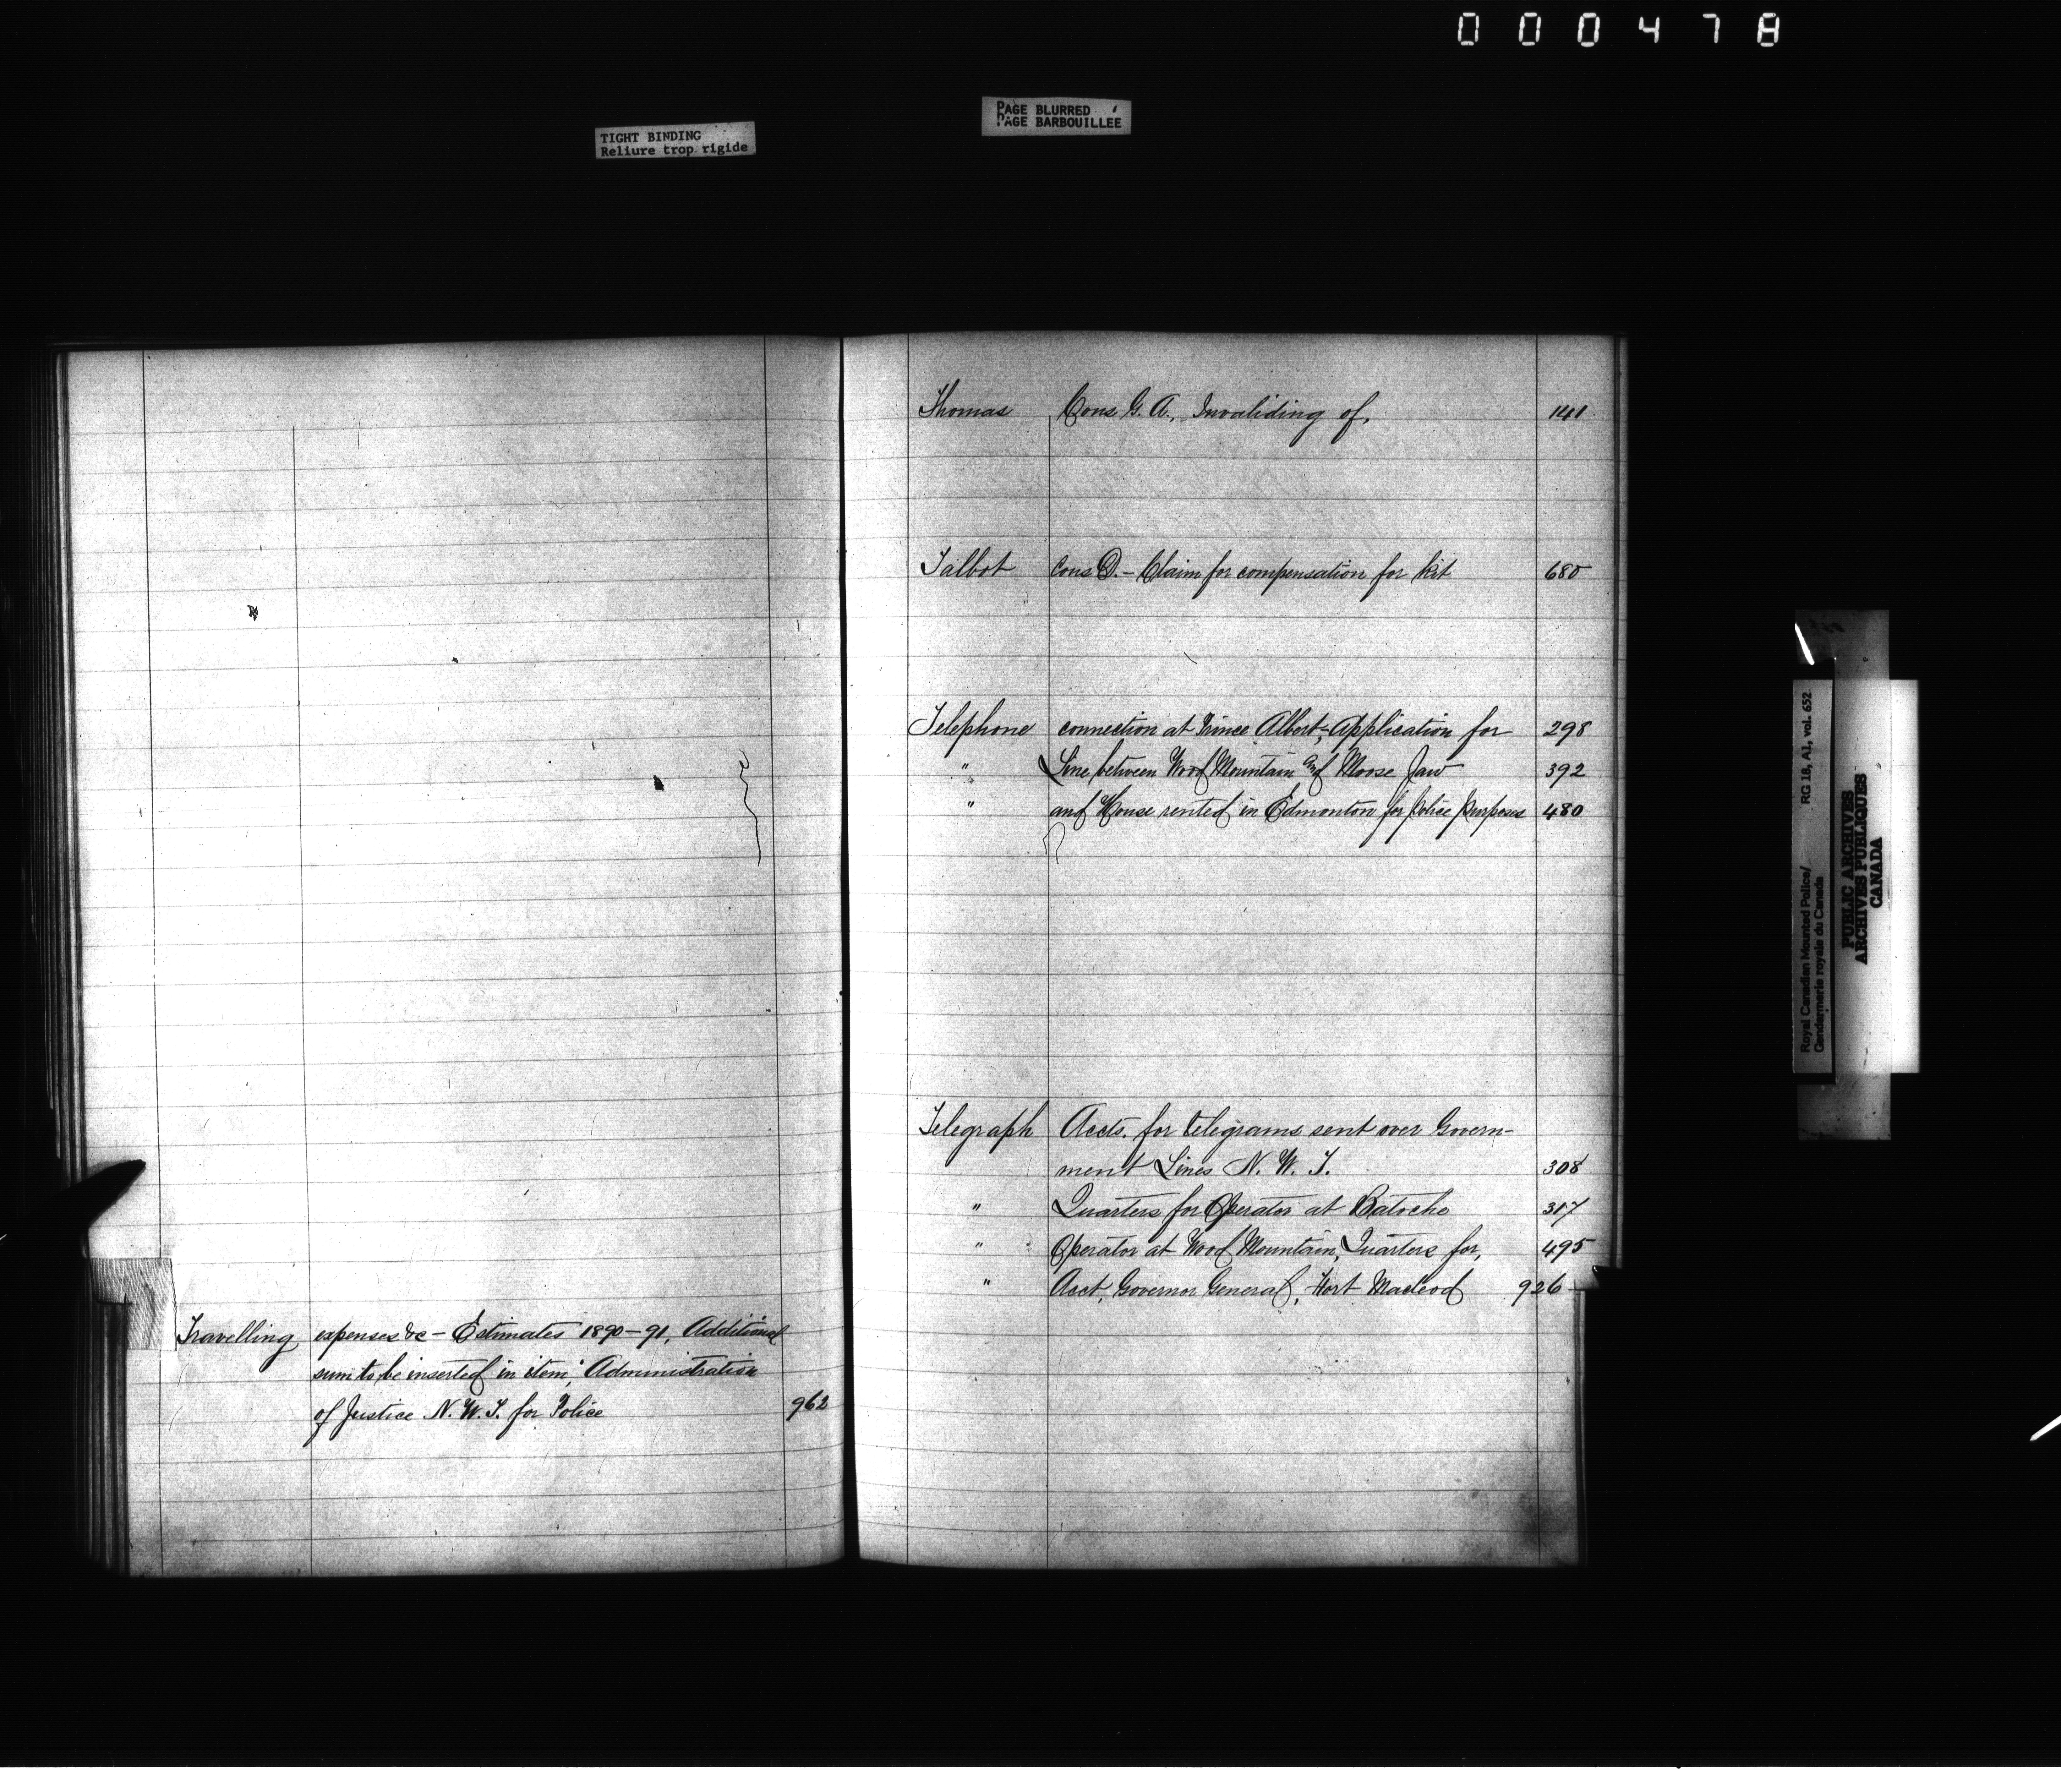 000478
TIGHT BINDING
Reliure trop rigide
PAGE BLURRED
PAGE BARBOUILLÉE
Travelling expenses &c - Estimates 1890-91, Additional
sum to be inserted in item, "Administration
of Justice N. W. T. for Police 962
Thomas Cons G. A., Invaliding of, 141
Talbot Cons D. - Claim for compensation for kit 680
Telephone connection at Prince Albert, - Application for 298
" Line between Wood Mountain and Moose Jaw 392
" and House rented in Edmonton for Police purposes 480
Telegraph Accts. for telegrams sent over Govern-
ment Lines N. W. T. 308
" Quarters for Operator at Batoche 317
" Operator at Wood Mountain, Quarters for, 495
" Acct, Governor General, Fort Macleod 926
Royal Canadian Mounted Police/ RG 18, A1, vol. 652
Gendarmerie royale du Canada
PUBLIC ARCHIVES
ARCHIVES PUBLIQUES
CANADA